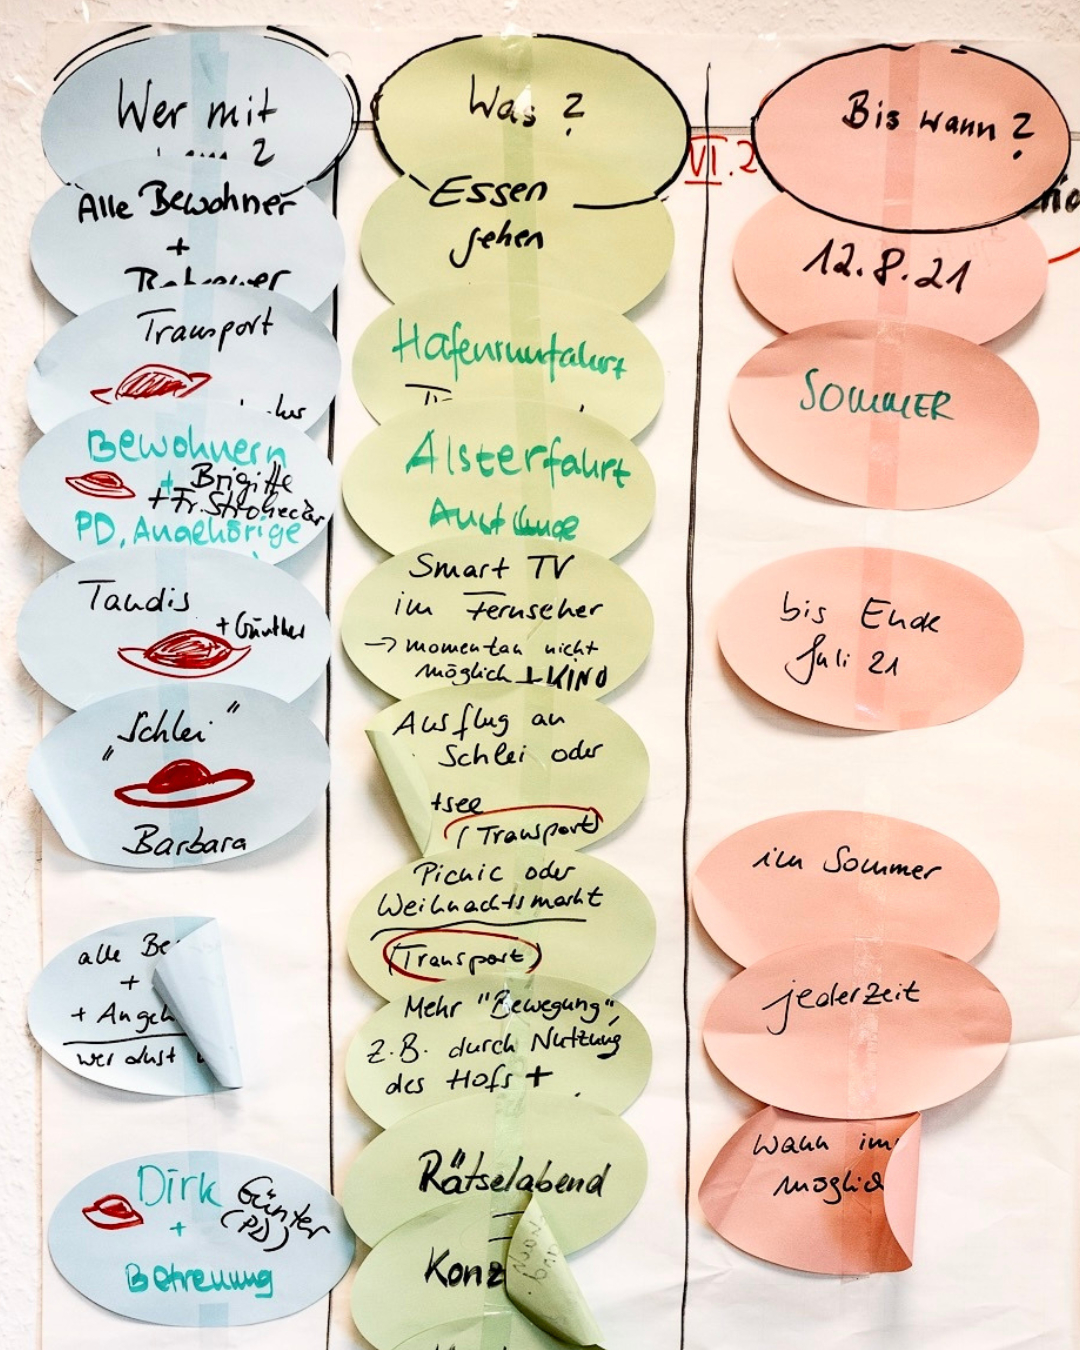 Wer mit
?
Alle Bewohner
+
Transport
Bewohnern
+ Brigitte
+ Fr. Strohecker
PD, Angehörige
Tandis
+ Günther
"Schlei"
Barbara
alle Be
+
+ Angeh
wer
Dirk Günter
+ (PD)
Betreuung
Was ?
Essen
gehen
Hafenrundfahrt
Alsterfahrt
Smart TV
im Fernseher
→ momentan nicht
möglich + KINO
Ausflug an
Schlei oder
tsee
(Transport)
Picnic oder
Weihnachtsmarkt
(Transport)
Mehr "Bewegung",
z.B. durch Nutzung
des Hofs +
Rätselabend
Konz
VI.2
Bis wann ?
12.8.21
SOMMER
bis Ende
Juli 21
im Sommer
jederzeit
wann im
möglich